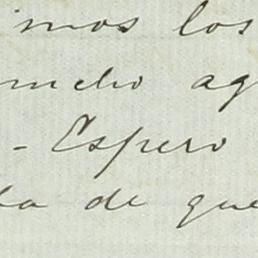 imos los
mucho ag
- Espero
da de que